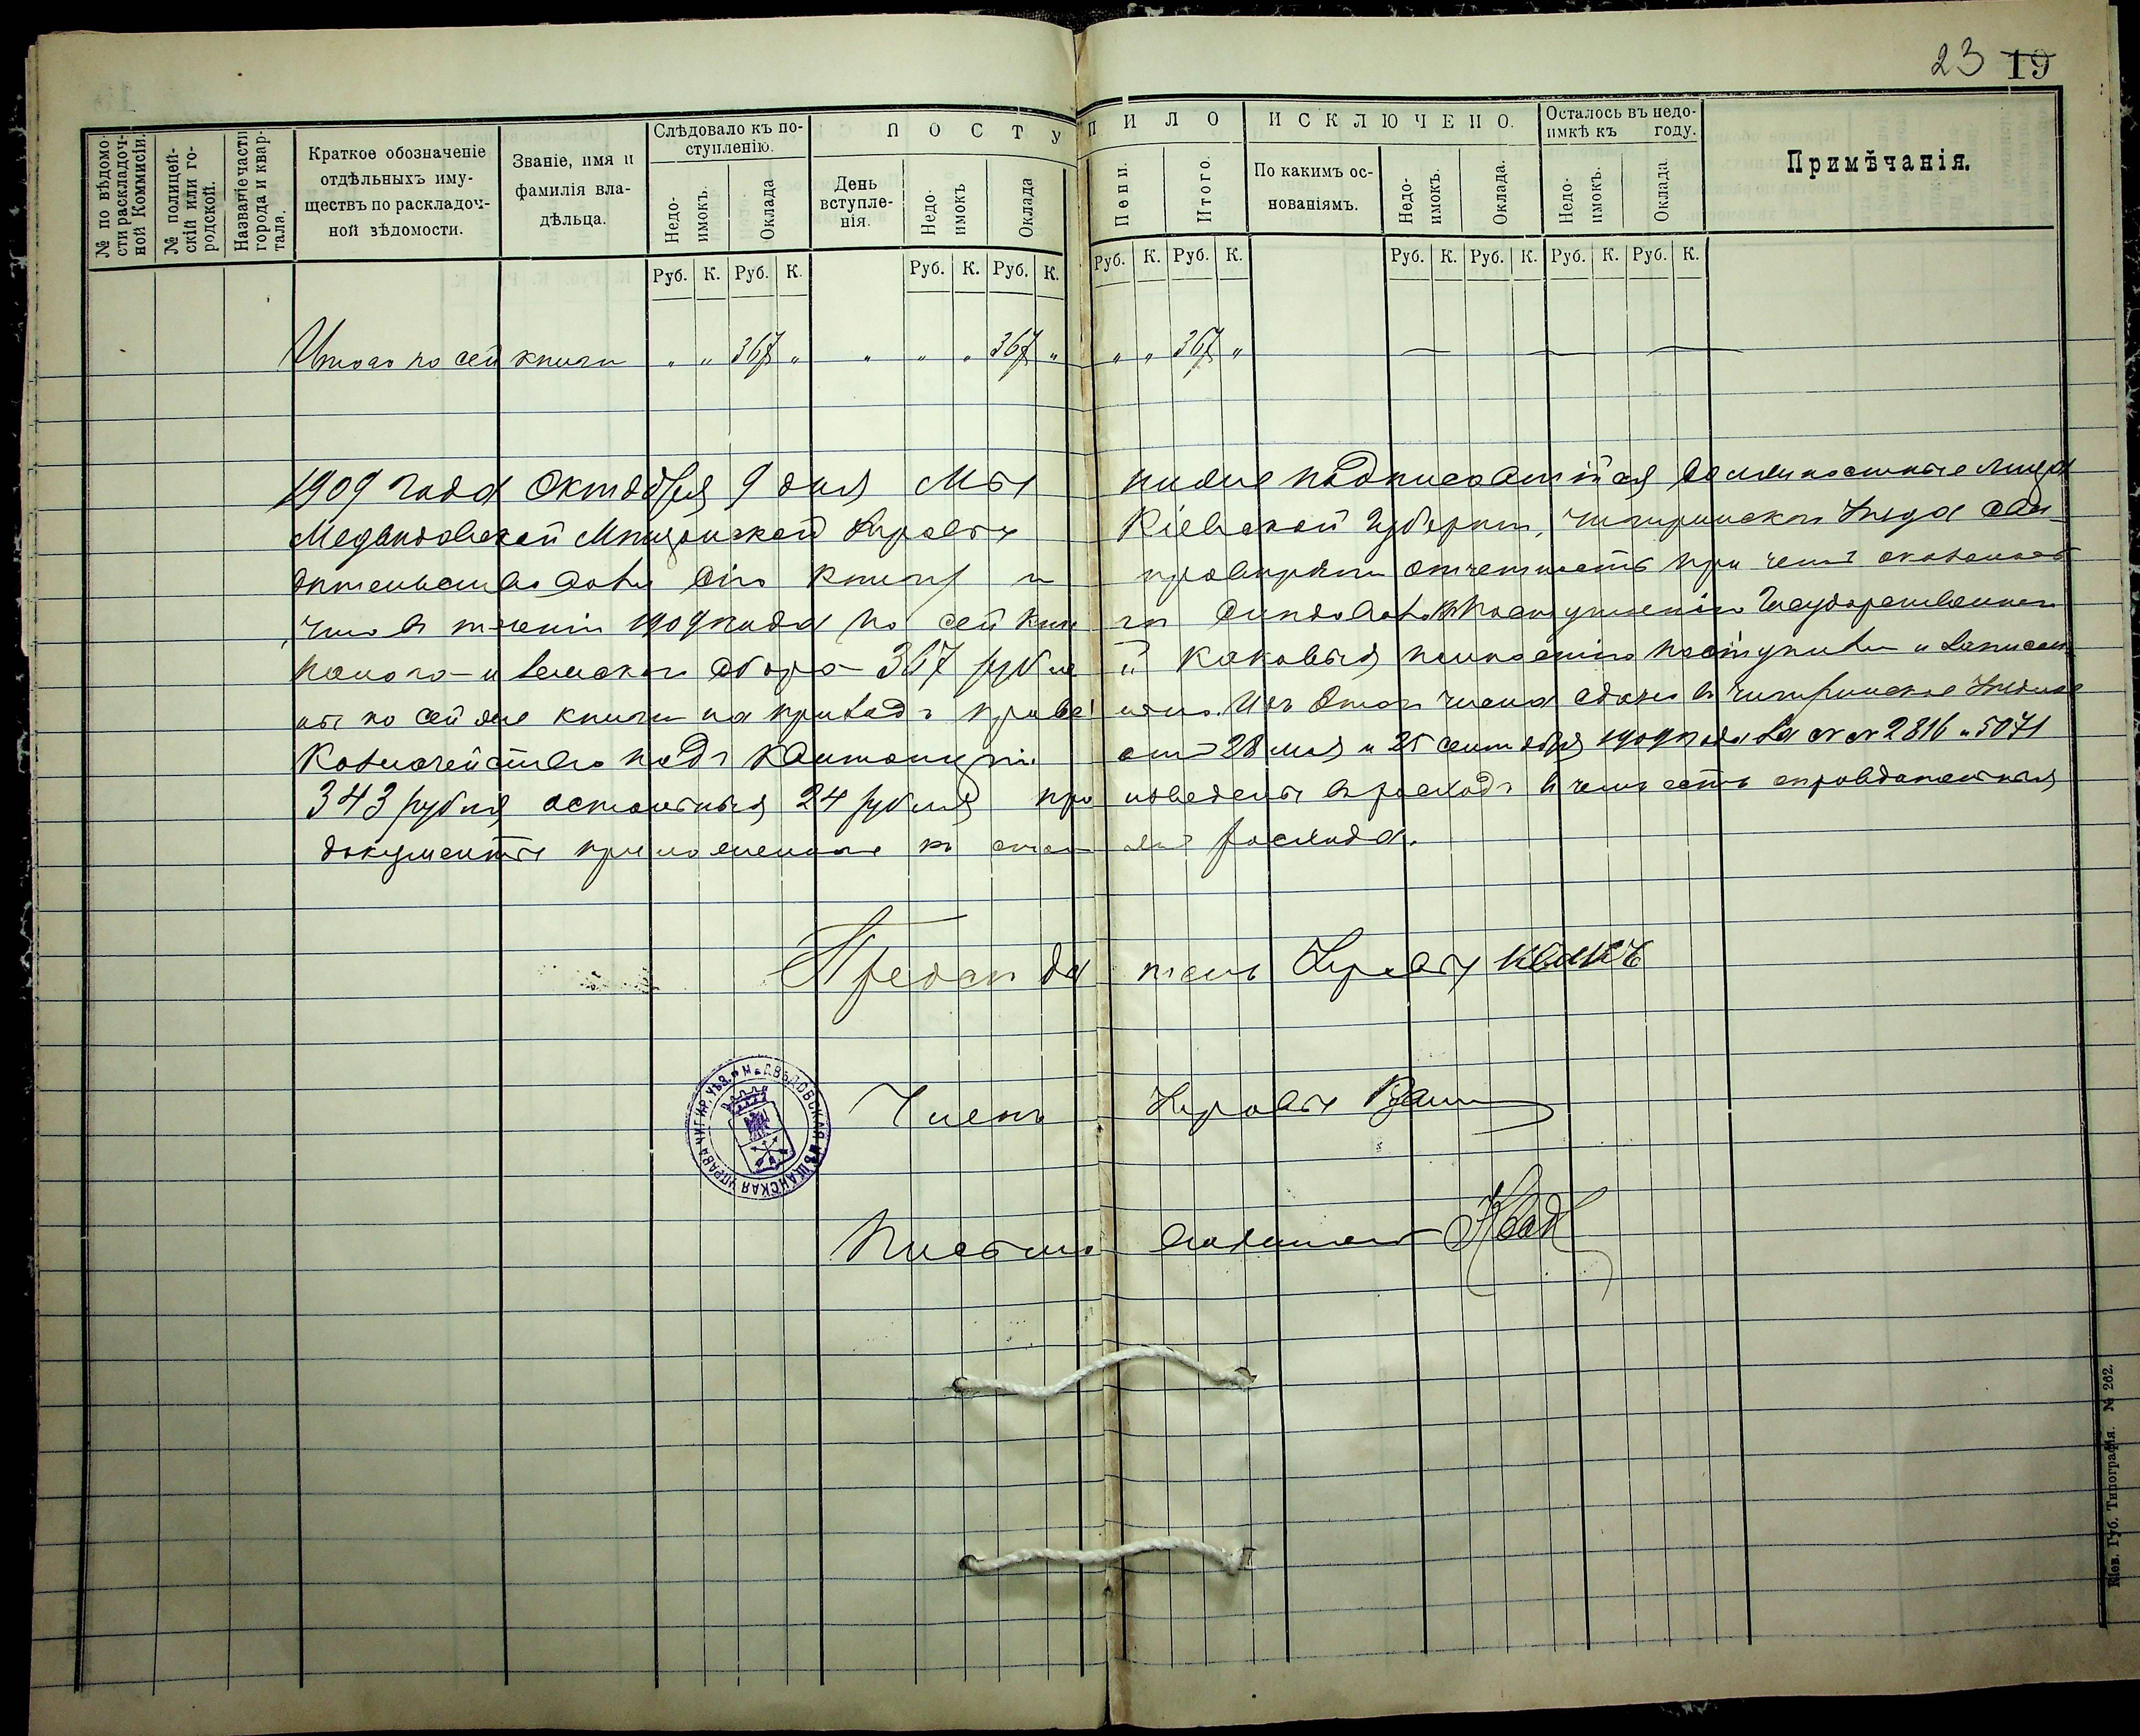 23 19
№ по вѣдомо-
сти раскладоч-
ной Коммисіи.
№ полицей-
скій или го-
родской.
Названіе части
города и квар-
тала.
Краткое обозначеніе
отдѣльныхъ иму-
ществъ по раскладоч-
ной вѣдомости.
Званіе, имя и
фамилія вла-
дѣльца.
Слѣдовало къ по-
ступленію.
Недо-
имокъ.
Оклада
ПОСТУПИЛО
День
вступле-
нія.
Недо-
имокъ
Оклада
Пени.
Итого.
ИСКЛЮЧЕНО.
По какимъ ос-
нованіямъ.
Недо-
имокъ.
Оклада.
Осталось въ недо-
имкѣ къ году.
Недо-
имокъ.
Оклада
Примѣчанія.
Руб. К. Руб. К. Руб. К. Руб. К. Руб. К. Руб. К. Руб. К. Руб. К. Руб. К. Руб. К.
Итого по сей книги „ „ 367 „ „ „ „ 367 „ „ „ 367 „ — — —
1909 года Октября 9 дня Мы ниже подписавшіяся должностные лица
Медвѣдовской Мѣщанской Управы Кіевской Губерніи, Чигиринскаго Уѣзда сви-
дѣтельствовали сію книгу и провѣряли отчетность при чемъ оказалось
что въ теченіи 1909 года по сей книги слѣдовало къ поступленію Государственнаго
налога и земскаго сбора 367 рублей каковыя полностію поступили и записаны
по сей же книги на приходъ правильно. Изъ этого числа сдано въ Чигиринское Уѣздное
Казначейство подъ квитанціи отъ 28 мая и 25 сентября 1909 года за №№ 2816 и 5071
343 рубля остальныя 24 рубля произведены въ расходъ въ чемъ есть оправдательныя
документы приложенные къ статьямъ расхода.
Предсѣдатель Управы
Членъ Управы
Письмоводитель
МЕДВѢДОВСКАЯ МѢЩАНСКАЯ УПРАВА ЧИГИР. УѢЗ.
Кіев. Губ. Типографія. № 262.